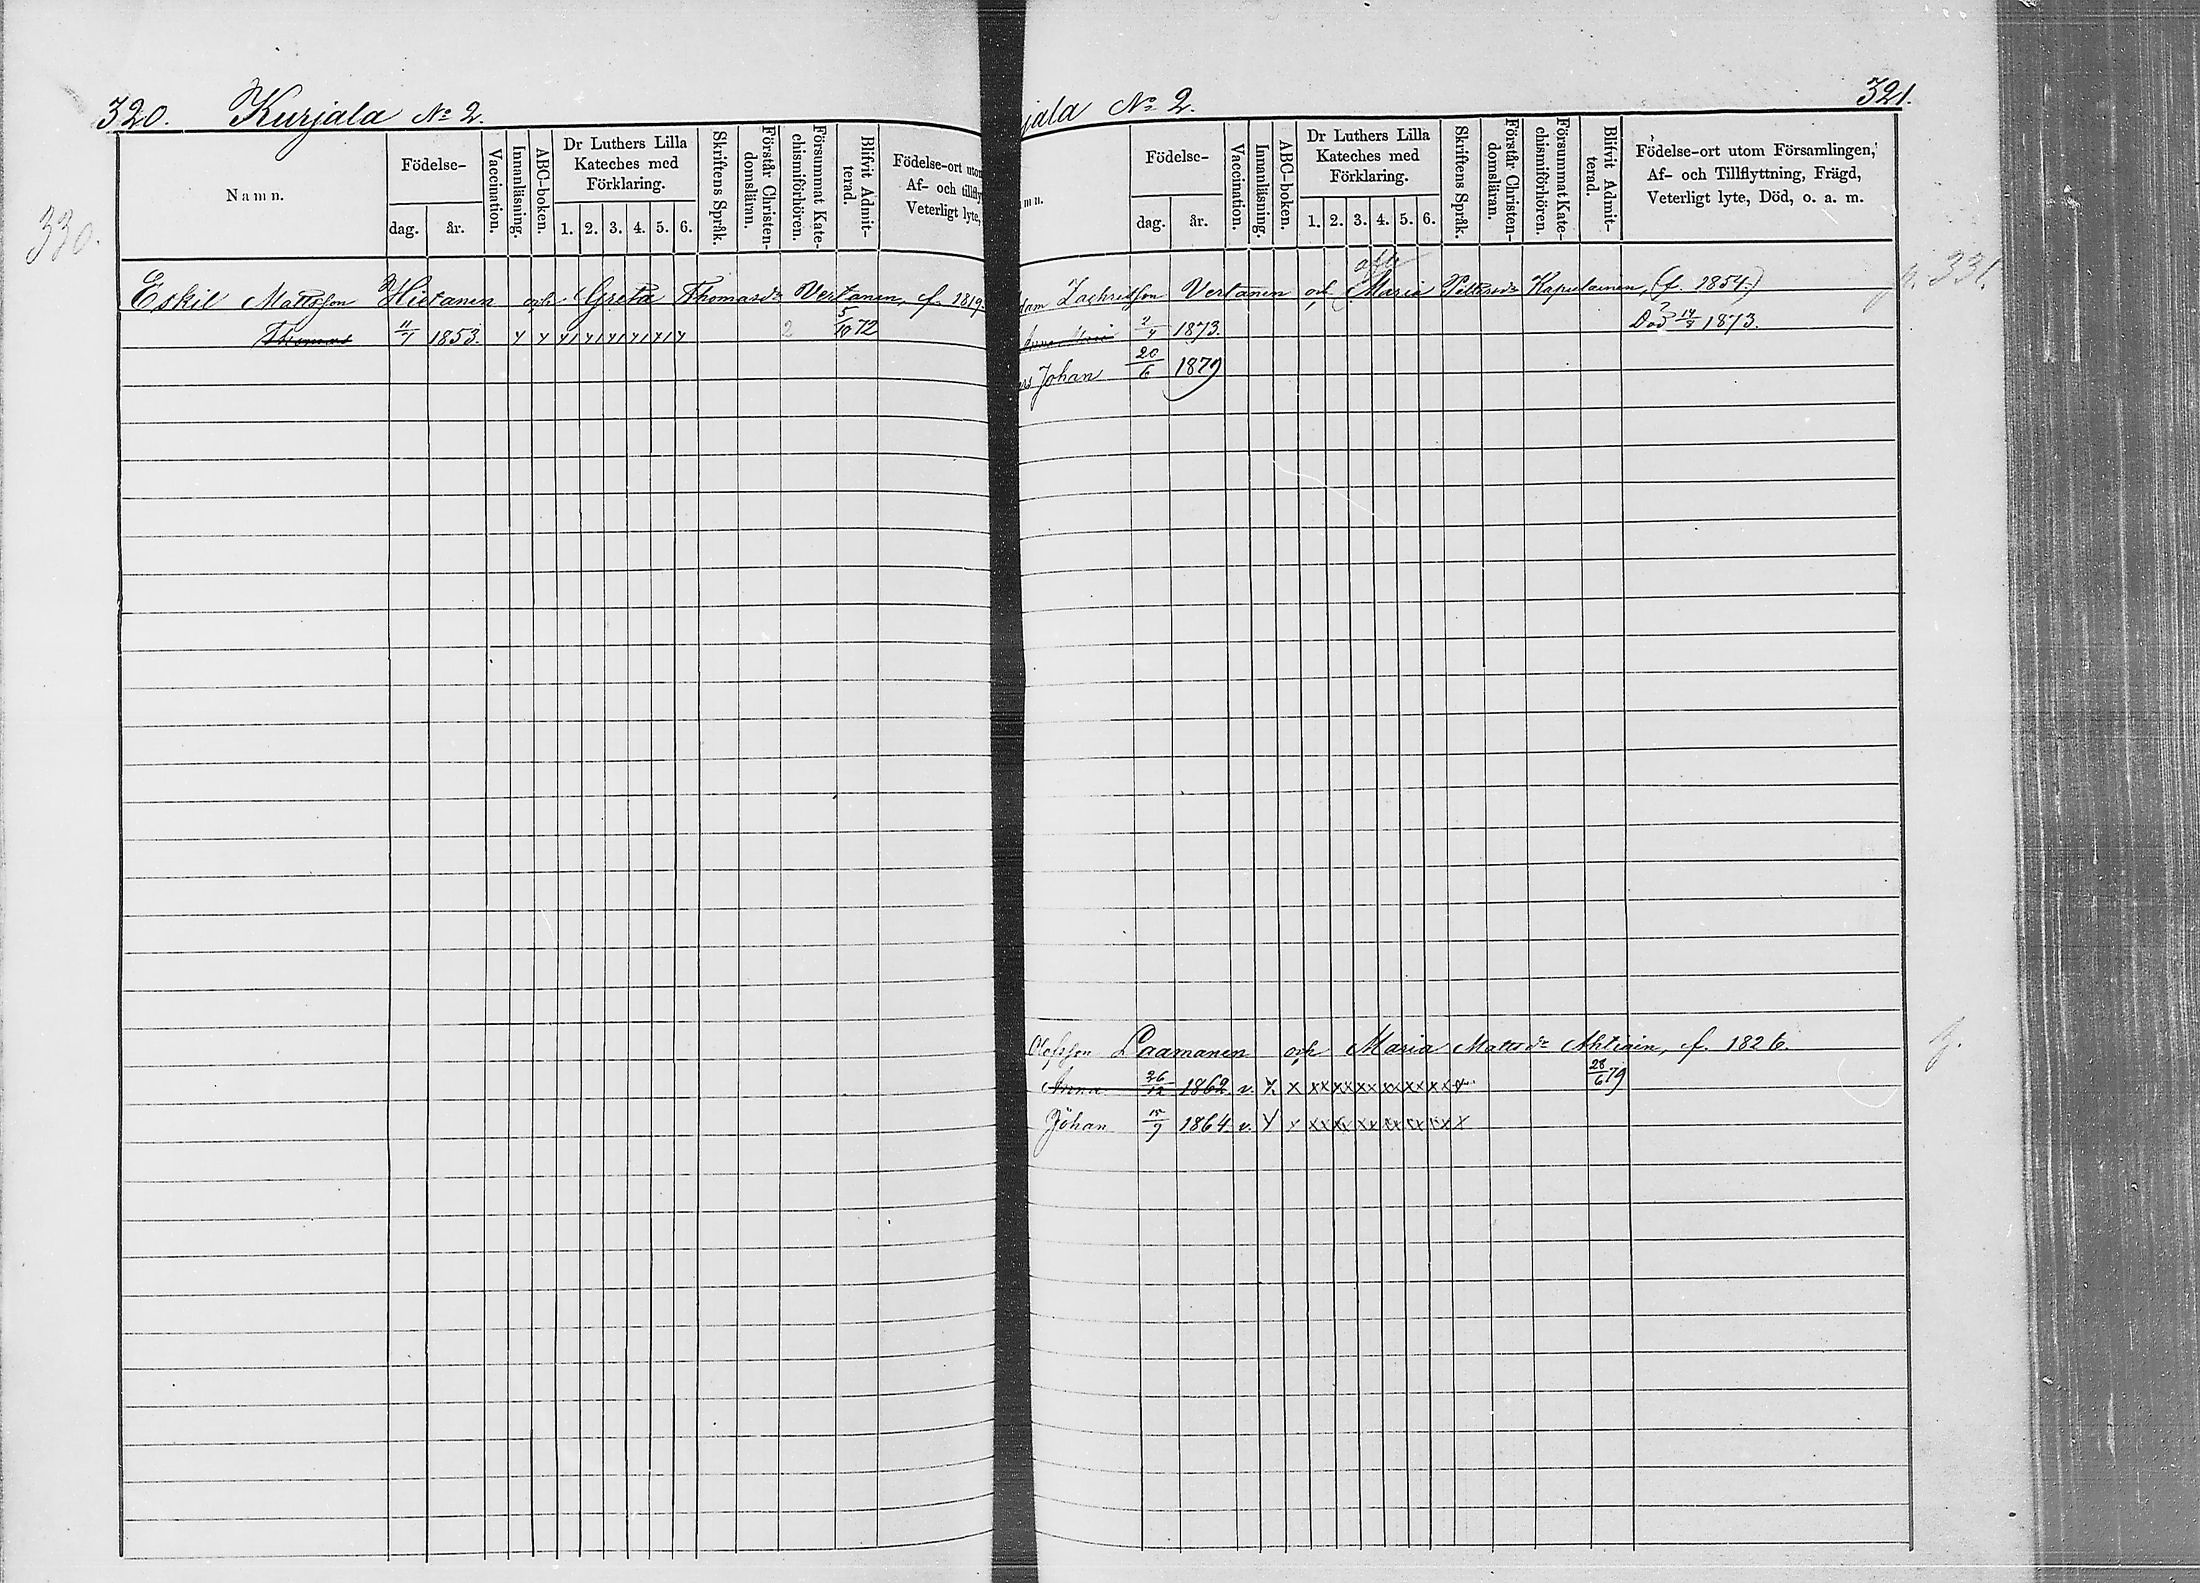 320. Kurjala No 2.
Namn.
Födelse-
dag. år.
Vaccination.
Innanläsning.
ABC-boken.
Dr Luthers Lilla
Kateches med
Förklaring.
1. 2. 3. 4. 5. 6.
Skriftens Språk.
Förstår Christen-
domsläran.
Försummat Kate-
chismiförhören.
Blifvit Admit-
terad.
Födelse-ort utom
Af- och tillfly
Veterligt lyte,
330.
Eskil Mattsson Hietanen och Greta Thomasdr Vertanen, f. 1819.
Thomas 11/4 1853. y y y y y y y y 2 5/10 72
jala No 2. 321.
mn.
Födelse-
dag. år.
Vaccination.
Innanläsning.
ABC-boken.
Dr Luthers Lilla
Kateches med
Förklaring.
1. 2. 3. 4. 5. 6.
Skriftens Språk.
Förstår Christen-
domsläran.
Försummat Kate-
chismiförhören.
Blifvit Admit-
terad.
Födelse-ort utom Församlingen,
Af- och Tillflyttning, Frägd,
Veterligt lyte, Död, o. a. m.
p. 331.
dam Zachrisson Vertanen och Maria Pettersdr Hapulainen, (f. 1854.)
Anna Maria 2/4 1873. Död 14/8 1873.
Johan 20/6 1879
Olofsson Laamanen och Maria Mattsdr Ahtiain, f. 1826.
Anna 26/12 1862 v. x x xx xx xx xx xx xx x 28/6 79
Johan 15/9 1864 v. y x xx xx xx xx xx xx x